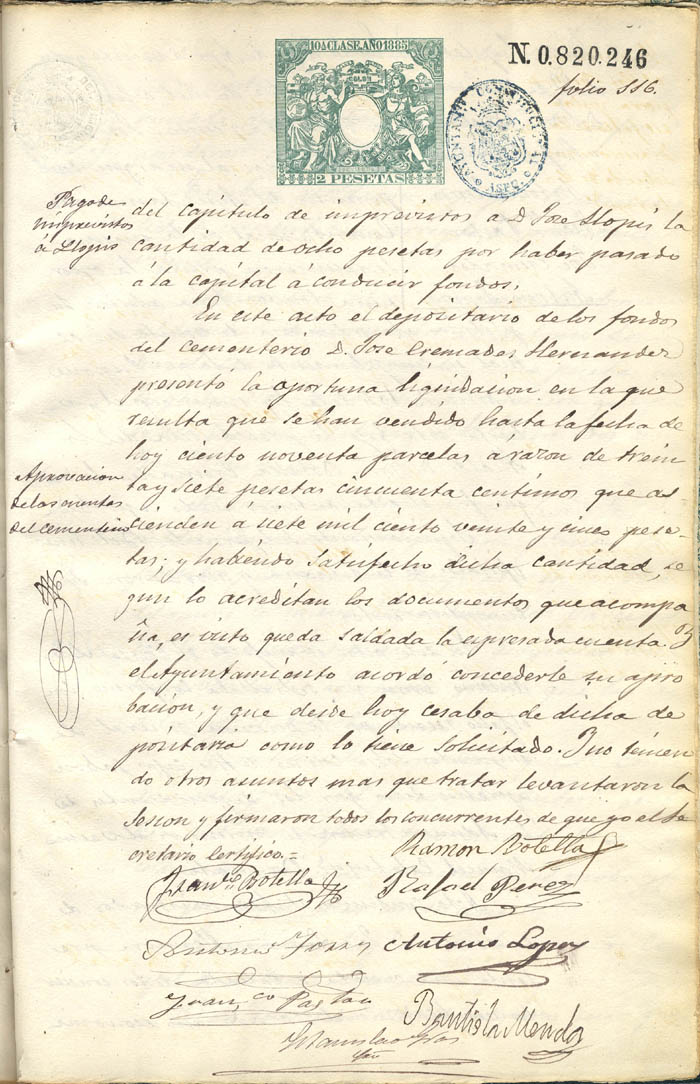 10ª CLASE. AÑO 1885
N. 0.820.246
folio 116.
2 PESETAS
AYUNTAMIENTO CONSTITUCIONAL
ASPE
Pago de
imprevistos
á Llopis
del capitulo de imprevistos a D. Jose Llopis la
cantidad de ocho pesetas por haber pasado
á la capital á conducir fondos.
En este acto el depositario de los fondos
del cementerio D. Jose Cremades Hernandez
presentó la oportuna liquidacion en la que
resulta que se han vendido hasta la fecha de
hoy ciento noventa parcelas á razon de trein
ta y siete pesetas cincuenta centimos que as
cienden á siete mil ciento veinte y cinco pese-
tas; y habiendo satisfecho dicha cantidad, se
gun lo acreditan los documentos que acompa
ña, es visto queda saldada la espresada cuenta. Y
el Ayuntamiento acordó concederle su apro
bacion, y que desde hoy cesaba de dicha de
positaria como lo tiene solicitado. Y no tenien
do otros asuntos mas que tratar levantaron la
sesion y firmaron todos los concurrentes de que yo el Se
cretario Certifico.=
Aprovacion
de las cuentas
del Cementerio
Ramon Botella
Fran.co Botella
Rafael Perez
Antonio
Antonio Lopez
Fran.co Pastor
Bautista
Estanislao